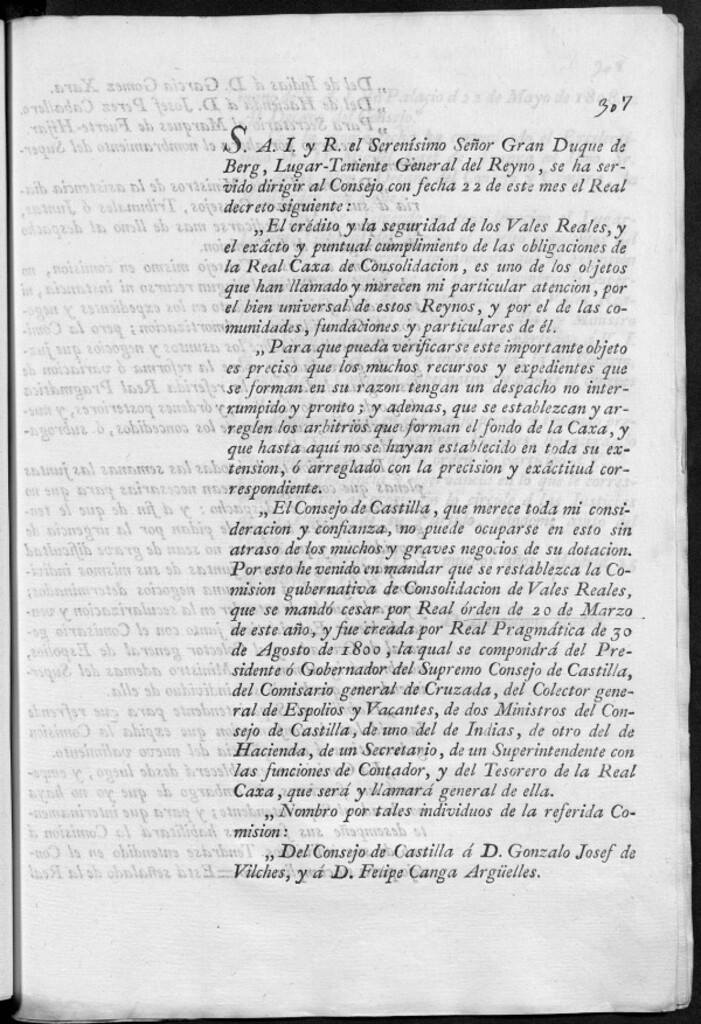 307
S. A. I. y R. el Serenísimo Señor Gran Duque de
Berg, Lugar-Teniente General del Reyno, se ha ser-
vido dirigir al Consejo con fecha 22 de este mes el Real
decreto siguiente:
„El crédito y la seguridad de los Vales Reales, y
el exâcto y puntual cumplimiento de las obligaciones de
la Real Caxa de Consolidacion, es uno de los objetos
que han llamado y merecen mi particular atencion, por
el bien universal de estos Reynos, y por el de las co-
munidades, fundaciones y particulares de él.
„Para que pueda verificarse este importante objeto
es preciso que los muchos recursos y expedientes que
se forman en su razon tengan un despacho no inter-
rumpido y pronto; y ademas, que se establezcan y ar-
reglen los arbitrios que forman el fondo de la Caxa, y
que hasta aquí no se hayan establecido en toda su ex-
tension, ó arreglado con la precision y exâctitud cor-
respondiente.
„El Consejo de Castilla, que merece toda mi consi-
deracion y confianza, no puede ocuparse en esto sin
atraso de los muchos y graves negocios de su dotacion.
Por esto he venido en mandar que se restablezca la Co-
mision gubernativa de Consolidacion de Vales Reales,
que se mandó cesar por Real órden de 20 de Marzo
de este año, y fue creada por Real Pragmática de 30
de Agosto de 1800, la qual se compondrá del Pre-
sidente ó Gobernador del Supremo Consejo de Castilla,
del Comisario general de Cruzada, del Colector gene-
ral de Espolios y Vacantes, de dos Ministros del Con-
sejo de Castilla, de uno del de Indias, de otro del de
Hacienda, de un Secretario, de un Superintendente con
las funciones de Contador, y del Tesorero de la Real
Caxa, que será y llamará general de ella.
„Nombro por tales individuos de la referida Co-
mision:
„Del Consejo de Castilla á D. Gonzalo Josef de
Vilches, y á D. Felipe Canga Argüelles.